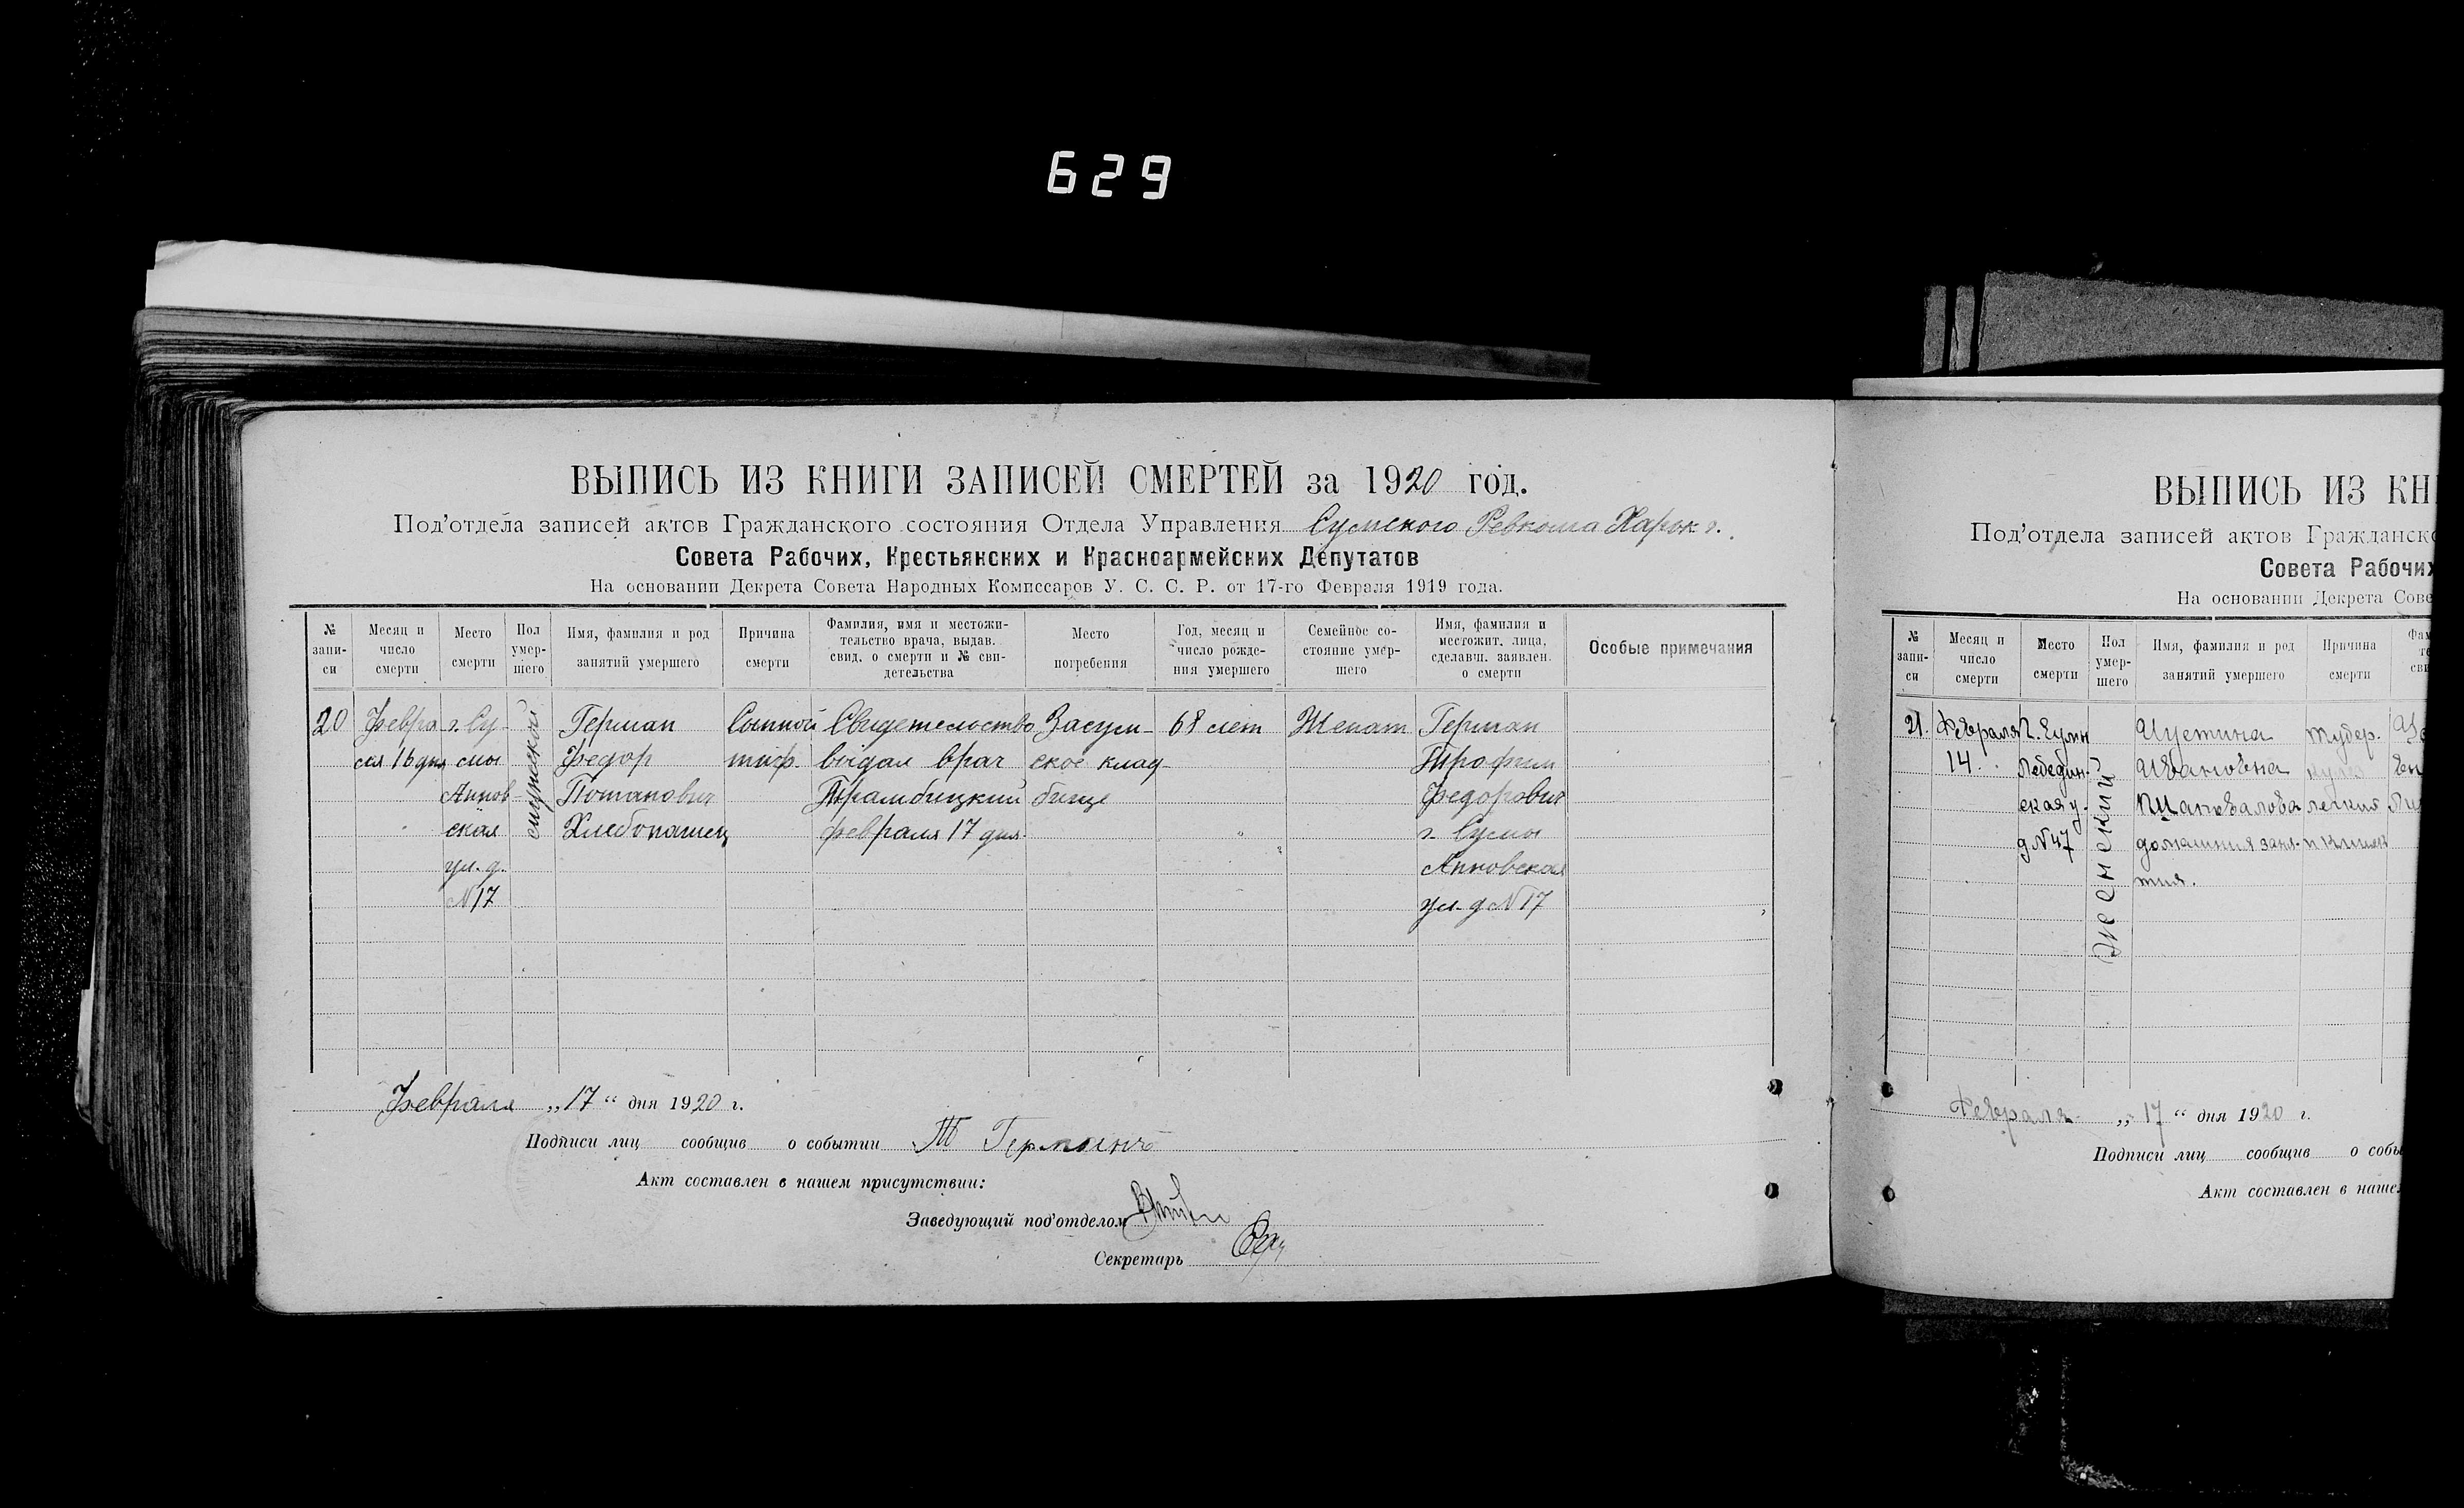 629
ВЫПИСЬ ИЗ КНИГИ ЗАПИСЕЙ СМЕРТЕЙ за 1920 год.
Под'отдела записей актов Гражданского состояния Отдела Управления Сумского Ревкома Харьк г.
Совета Рабочих, Крестьянских и Красноармейских Депутатов
На основании Декрета Совета Народных Комиссаров У. С. С. Р. от 17-го Февраля 1919 года.
№ запи-си
Месяц и число смерти
Место смерти
Пол умер-шего
Имя, фамилия и род занятий умершего
Причина смерти
Фамилия, имя и местожи-тельство врача, выдав. свид. о смерти и № сви-детельства
Место погребения
Год, месяц и число рожде-ния умершего
Семейное со-стояние умер-шего
Имя, фамилия и местожит. лица, сделавш. заявлен. о смерти
Особые примечания
20
Февра-
ля 16 дня
г. Су-
мы
Аннов-
ская
ул. д.
№ 17
мужской
Герман
Федор
Потапович
Хлебопашец
Сыпной
тиф.
Свидетельство
выдал врач
Трамбицкий
февраля 17 дня.
Засум-
ское клад-
бище
68 лет
Женат
Герман
Трофим
Федорович
г. Сумы
Анновская
ул. д № 17
Февраля „17" дня 1920 г.
Подписи лиц сообщив о событии Т Германъ
Акт составлен в нашем присутствии:
Заведующий под'отделом
Секретарь
ВЫПИСЬ ИЗ КН
Под'отдела записей актов Гражданск
Совета Рабочих
На основании Декрета Сове
№ запи-си
Месяц и число смерти
Место смерти
Пол умер-шего
Имя, фамилия и род занятий умершего
Причина смерти
21.
Февраля
14.
г. Сумы
Лебедин-
ская у.
д № 47
женский
Иустина
Ивановна
Шаповалова
домашния заня-
тия.
тубер.
легких
Февраля „17" дня 1920 г.
Подписи лиц сообщив о собы
Акт составлен в наше